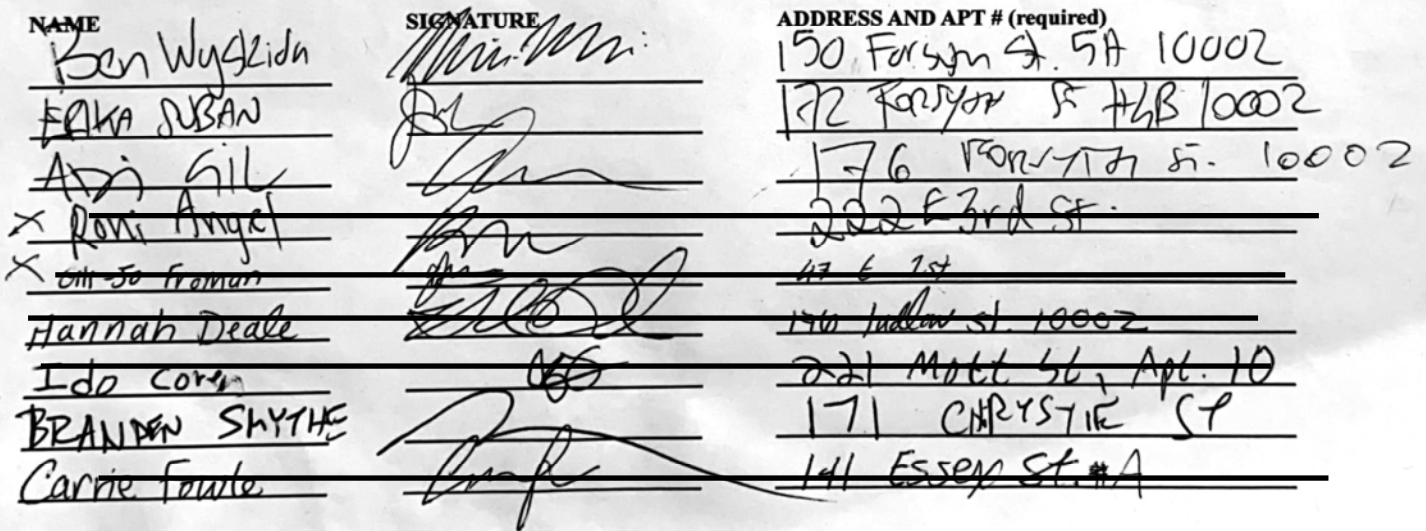 NAME SIGNATURE ADDRESS AND APT # (required)
Ben Wyskida 150 Forsyth St. 5A 10002
ERIKA SUBAN 172 FORSYTH St #4B 10002
ADI GIL 176 FORSYTH St. 10002
X Roni Angel 222 E 3rd St.
X Froman 47 E 1st
Hannah Deale 196 Ludlow st. 10002
Ido Coren 221 Mott St, Apt. 10
BRANDEN SMYTHE 171 CHRYSTIE ST
Carrie Fowle 141 Essex St. #A